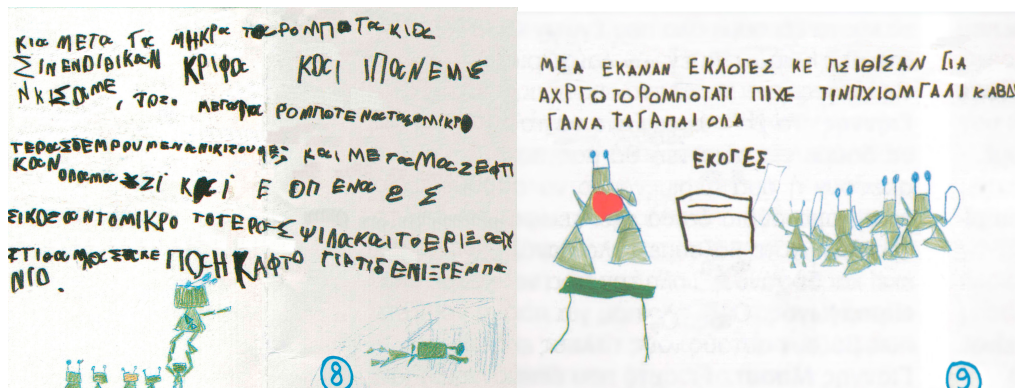 ΚΙΑ ΜΕΤΑ ΤΑ ΜΗΚΡΑ ΤΑ ΡΟΜΠΟΤΑ ΚΙΑ
ΣΙΝΕΝΔΙΘΙΚΑΝ ΚΡΙΦΑ ΚΑΙ ΙΠΑΝΕΜΕ
ΝΚΙΣΟΜΕ, ΤΟΣΟ ΜΕΓΑΡΑ ΡΟΜΠΟΤΕΝΑΤΟΣΟΜΙΚΡΟ
ΤΕΡΑΣΔΕΜΡΟΥΜΕΝΑΝΙΚΙΣΟΥΜΕΣ ΚΑΙ ΜΕΤΑΜΑΖΕΦΤΙ
ΚΑΝ ΟΛΑΜΑΖΙ ΚΑΙ Ε ΟΠ ΕΝΑ Ε Σ
ΣΙΚΟΣΑΝΤΟΜΙΚΡΟ ΤΟΤΕΡΑΣ ΨΙΛΑΚΑΙΤΟΕΡΙΞΑΝ
ΣΤΙΘΑΛΑΣΑΚΕ ΠΟΣΗΚΑΦΤΟ ΓΙΑΤΙΔΕΝΙΞΡΕΜΠΑ
ΝΙΟ.
8
ΜΕΑ ΕΚΑΝΑΝ ΕΚΛΟΓΕΣ ΚΕ ΠΣΙΘΙΣΑΝ ΓΙΑ
ΑΧΡΓΩΤΟΡΟΜΠΟΤΑΤΙ ΠΙΧΕ ΤΙΝΠΧΙΟΜΓΑΛΙΚΑΒΔΙ
ΓΑΝΑ ΤΑΓΑΠΑΙ ΟΛΑ
ΕΚΟΓΕΣ
9